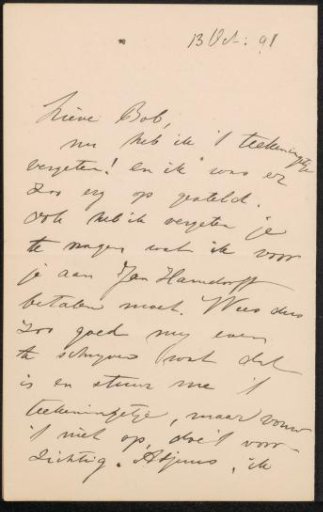 13 Oct. 91
Lieve Bob,
nu heb ik 't teekeningetje
vergeten! en ik was er
zoo erg op gesteld.
Ook heb ik vergeten je
te vragen wat ik voor
je aan Jan Hamdorff
betalen moet. Wees dus
zoo goed my even
te schryven wat dat
is en stuur me 't
teekeningetje, maar vouw
't niet op, doe 't voor-
zichtig. Adjuus, ik